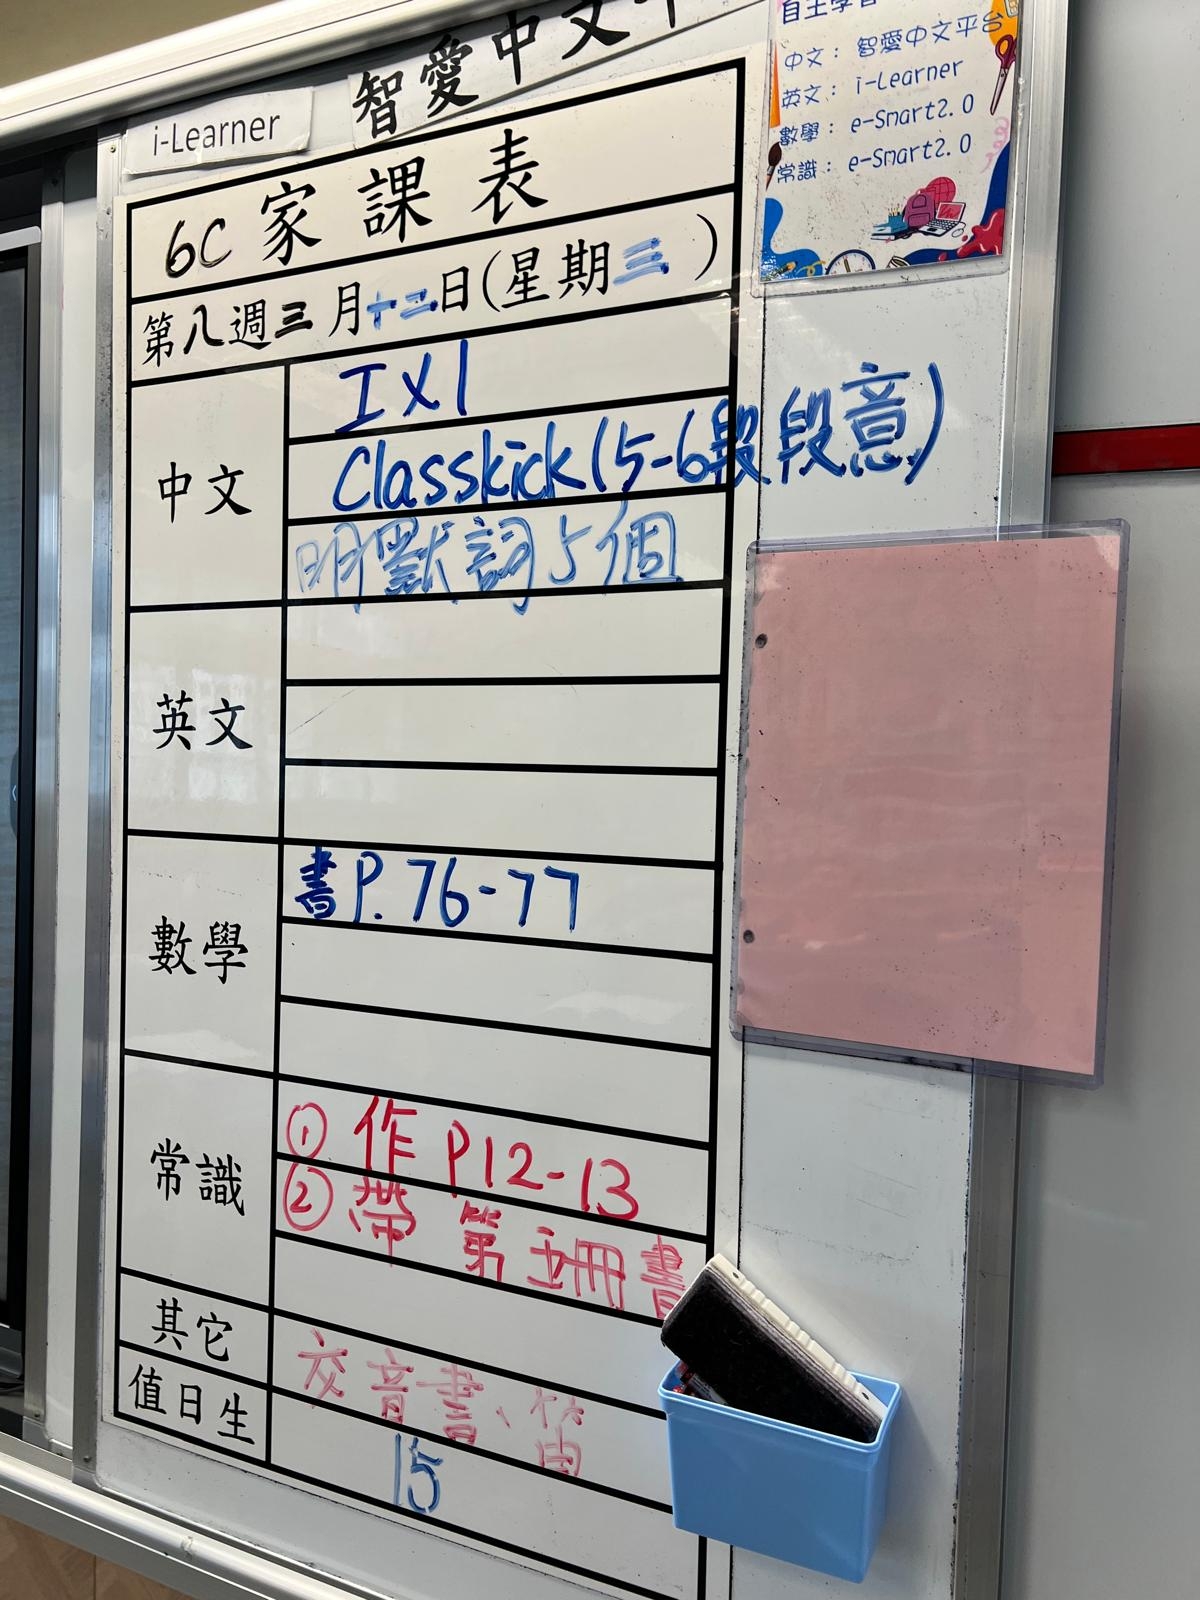 智愛中文平
i-Learner
自主學習
中文：智愛中文平台
英文：i-Learner
數學：e-Smart2.0
常識：e-Smart2.0
6C 家課表
第八週三月十二日(星期三)
中文
IX1
Classkick(5-6段段意)
明默詞5個
英文
數學
書P.76-77
常識
① 作 P12-13
② 帶 第五冊書
其它
交音書、笛
值日生
15